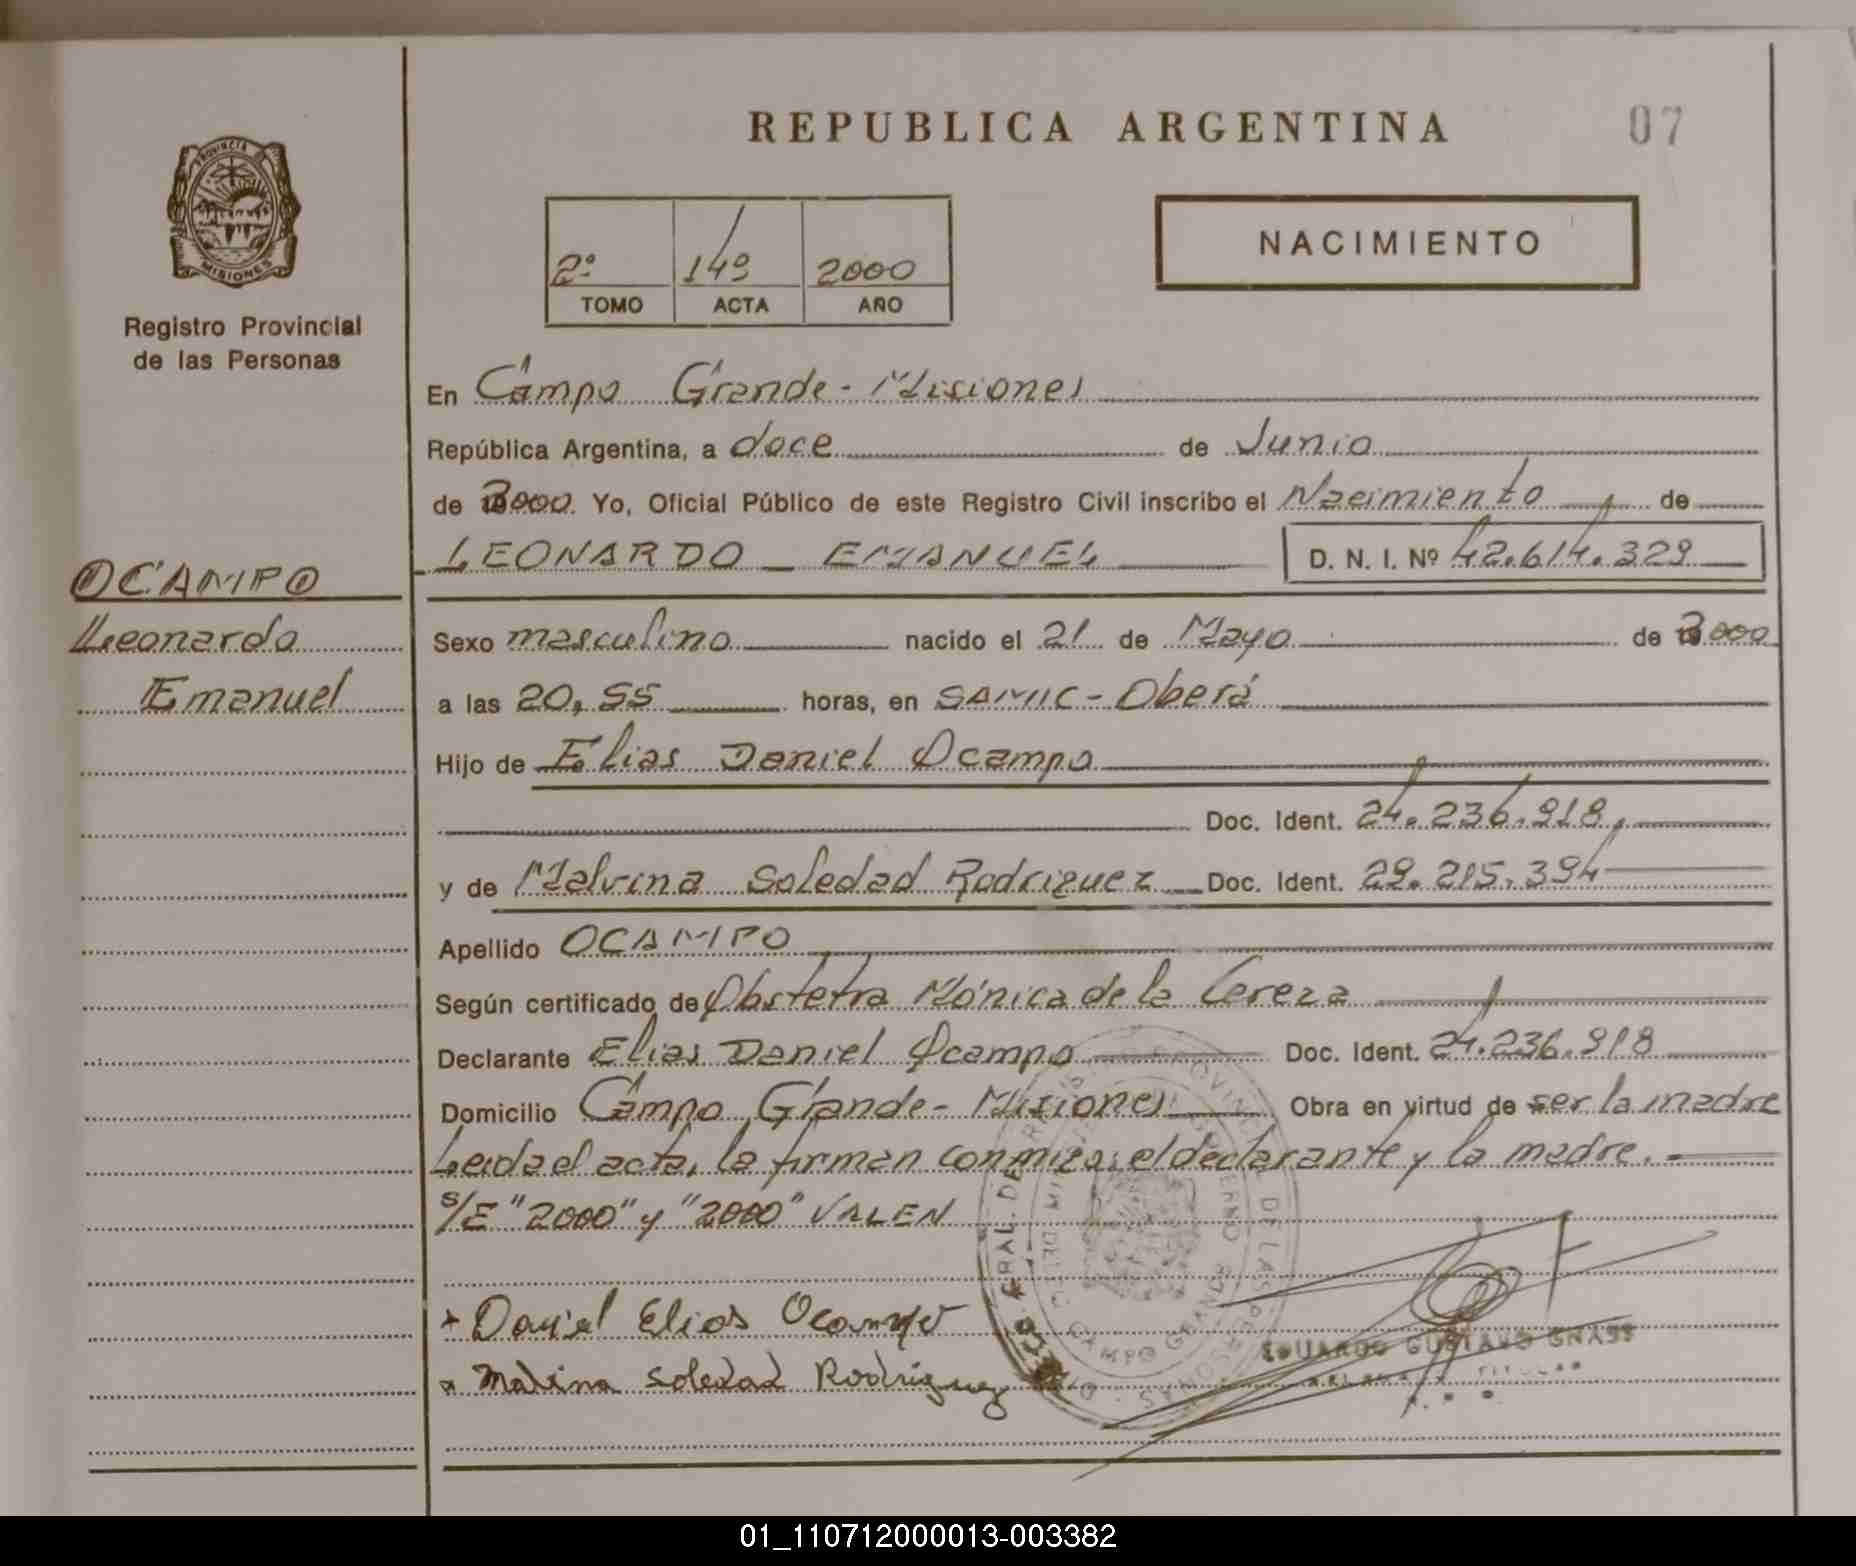 REPUBLICA ARGENTINA
07
PROVINCIA DE
MISIONES
Registro Provincial
de las Personas
2º 149 2000
TOMO ACTA AÑO
NACIMIENTO
En Campo Grande - Misiones
República Argentina, a doce de Junio
de 2000. Yo, Oficial Público de este Registro Civil inscribo el Nacimiento de
LEONARDO EMANUEL D. N. I. Nº 42.614.329
OCAMPO
Leonardo
Emanuel
Sexo masculino nacido el 21 de Mayo de 2000
a las 20,55 horas, en SAMIC - Oberá
Hijo de Elias Daniel Ocampo
Doc. Ident. 24.236.918
y de Malvina Soledad Rodriguez Doc. Ident. 29.215.394
Apellido OCAMPO
Según certificado de Obstetra Mónica de la Cereza
Declarante Elias Daniel Ocampo Doc. Ident. 24.236.918
Domicilio Campo Grande - Misiones Obra en virtud de ser la madre
Leida el acta, la firman conmigo: el declarante y la madre. -
S/E "2000" y "2000" VALEN
x Daniel Elias Ocampo
x Malvina Soledad Rodriguez
EDUARDO GUSTAVO GNASS
TITULAR
01_110712000013-003382